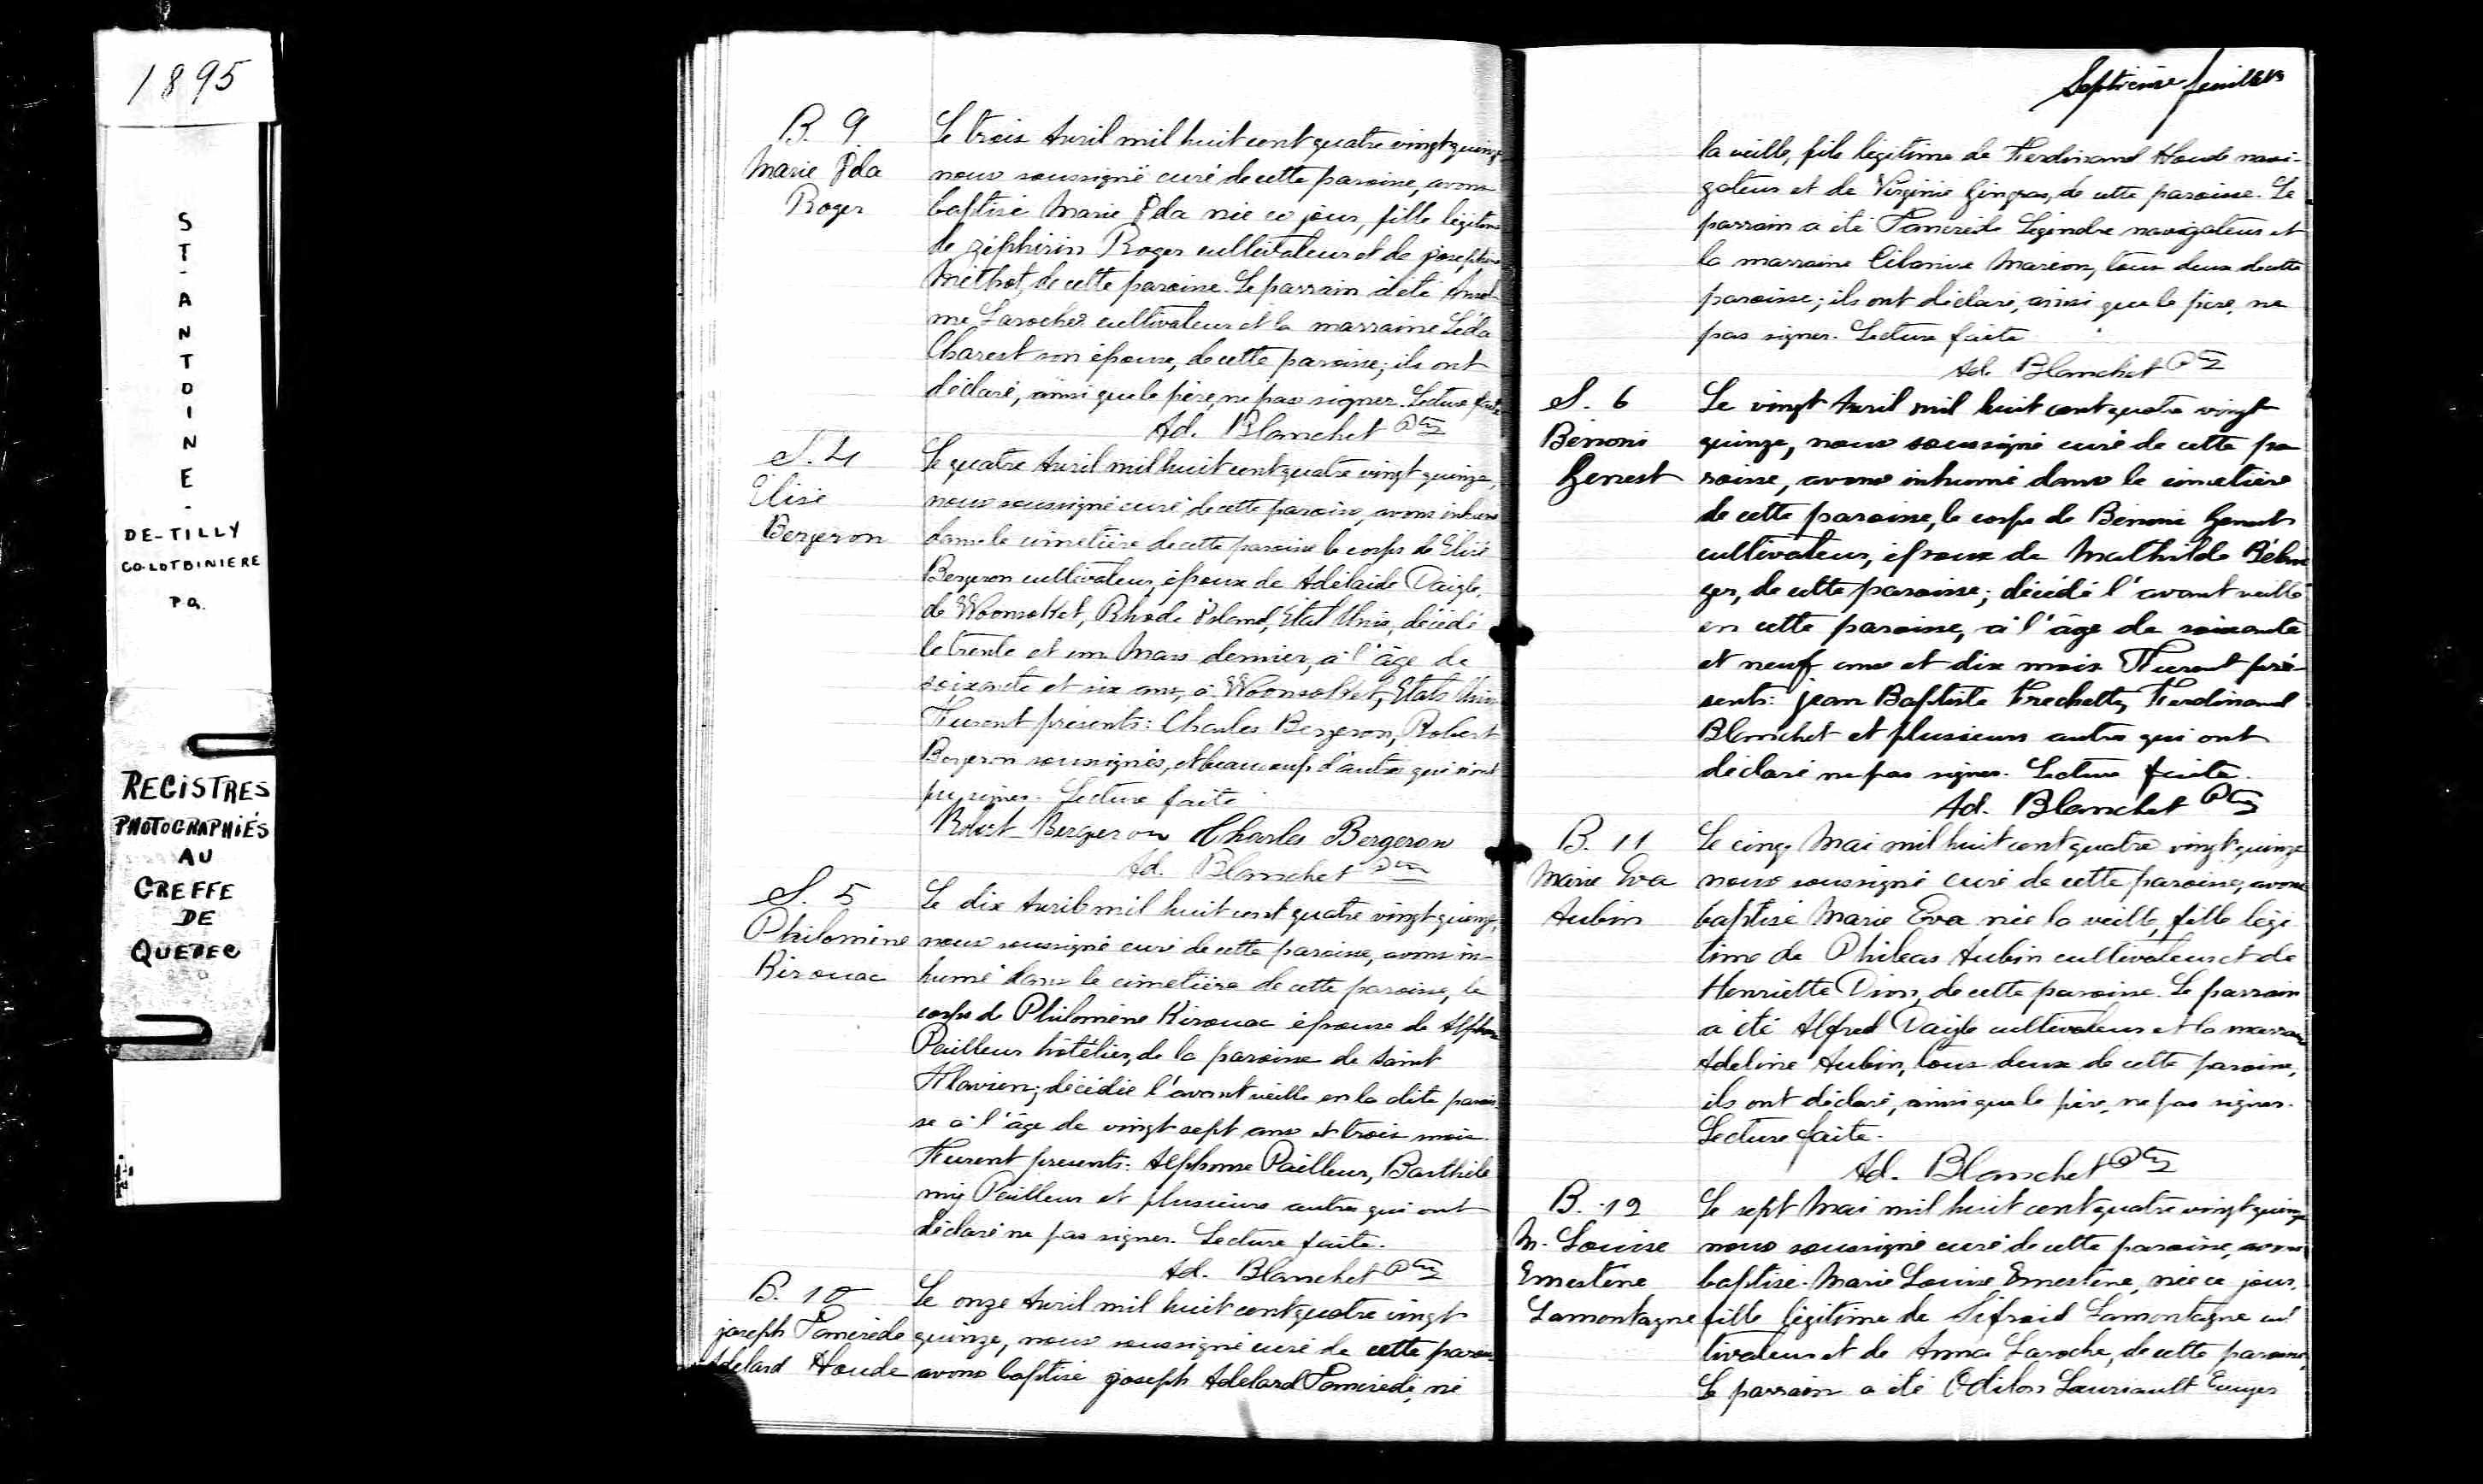 1895
ST-ANTOINE-
DE-TILLY
CO. LOTBINIERE
P.Q.
REGISTRES
PHOTOGRAPHIÉS
AU
GREFFE
DE
QUEBEC
B. 9
Marie Ida
Roger
Le trois Avril mil huit cent quatre vingt quinze
nous soussigné curé de cette paroisse, avons
baptisé Marie Ida née ce jour, fille légitime
de Zéphirin Roger cultivateur et de Josephine
Méthot, de cette paroisse. Le parrain a été Ansel-
me Laroche cultivateur et la marraine Léda
Charest son épouse, de cette paroisse; ils ont
déclaré, ainsi que le père, ne pas signer. Lecture faite
Ad. Blanchet Ptre
S. 4
Elisé
Bergeron
Le quatre Avril mil huit cent quatre vingt quinze,
nous soussigné curé de cette paroisse, avons inhumé
dans le cimetière de cette paroisse le corps de Elisé
Bergeron cultivateur, époux de Adélaide Daigle,
de Woonsoket, Rhode Island, Etat Unis, décédé
le trente et un Mars dernier, à l'âge de
soixante et six ans, à Woonsoket, Etats Unis
Furent présents: Charles Bergeron, Robert
Bergeron soussignés, et beaucoup d'autres qui n'ont
pu signer. Lecture faite
Robert Bergeron Charles Bergeron
Ad. Blanchet Ptre
S. 5
Philomène
Kirouac
Le dix Avril mil huit cent quatre vingt quinze,
nous soussigné curé de cette paroisse, avons in-
humé dans le cimetière de cette paroisse, le
corps de Philomène Kirouac épouse de Alphonse
Pailleur hôtélier, de la paroisse de Saint
Flavien; décédée l'avant veille en la dite parois-
se à l'âge de vingt sept ans et trois mois.
Furent présents: Alphonse Pailleur, Barthéle
my Pailleur et plusieurs autres qui ont
déclaré ne pas signer. Lecture faite.
Ad. Blanchet Ptre
B. 10
joseph Tancrède
Adelard Houde
Le onze Avril mil huit cent quatre vingt
quinze, nous soussigné curé de cette paroisse
avons baptisé joseph Adelard Tancrède, né
Septième feuillet
la veille, fils légitime de Ferdinand Houde navi-
gateur et de Virginie Gingras, de cette paroisse. Le
parrain a été Tancrède Légendre navigateur et
la marraine Célanise Marion, tous deux de cette
paroisse; ils ont déclaré, ainsi que le père, ne
pas signer. Lecture faite
Ad. Blanchet Ptre
S. 6
Bénoni
Genest
Le vingt Avril mil huit cent quatre vingt
quinze, nous soussigné curé de cette pa
roisse, avons inhumé dans le cimetière
de cette paroisse, le corps de Bénoni Genest
cultivateur, époux de Mathilde Bélan
ger, de cette paroisse; décédé l'avant veille
en cette paroisse, à l'âge de soixante
et neuf ans et dix mois. Furent pré-
sents: Jean Baptiste Frechette, Ferdinand
Blanchet et plusieurs autres qui ont
déclaré ne pas signer. Lecture faite.
Ad. Blanchet Ptre
B. 11
Marie Eva
Aubin
Le cinq Mai mil huit cent quatre vingt quinze
nous soussigné curé de cette paroisse, avons
baptisé Marie Eva née la veille, fille légi
time de Philéas Aubin cultivateur et de
Henriette Dion, de cette paroisse. Le parrain
a été Alfred Daigle cultivateur et la marraine
Adeline Aubin, tous deux de cette paroisse,
ils ont déclaré, ainsi que le père, ne pas signer.
Lecture faite.
Ad. Blanchet Ptre
B. 12
M. Louise
Ernestine
Lamontagne
Le sept Mai mil huit cent quatre vingt quinze
nous soussigné curé de cette paroisse, avons
baptisé Marie Louise Ernestine, née ce jour,
fille légitime de Sifroid Lamontagne cul
tivateur et de Anna Laroche, de cette paroisse,
Le parrain a été Odilon Lauriault